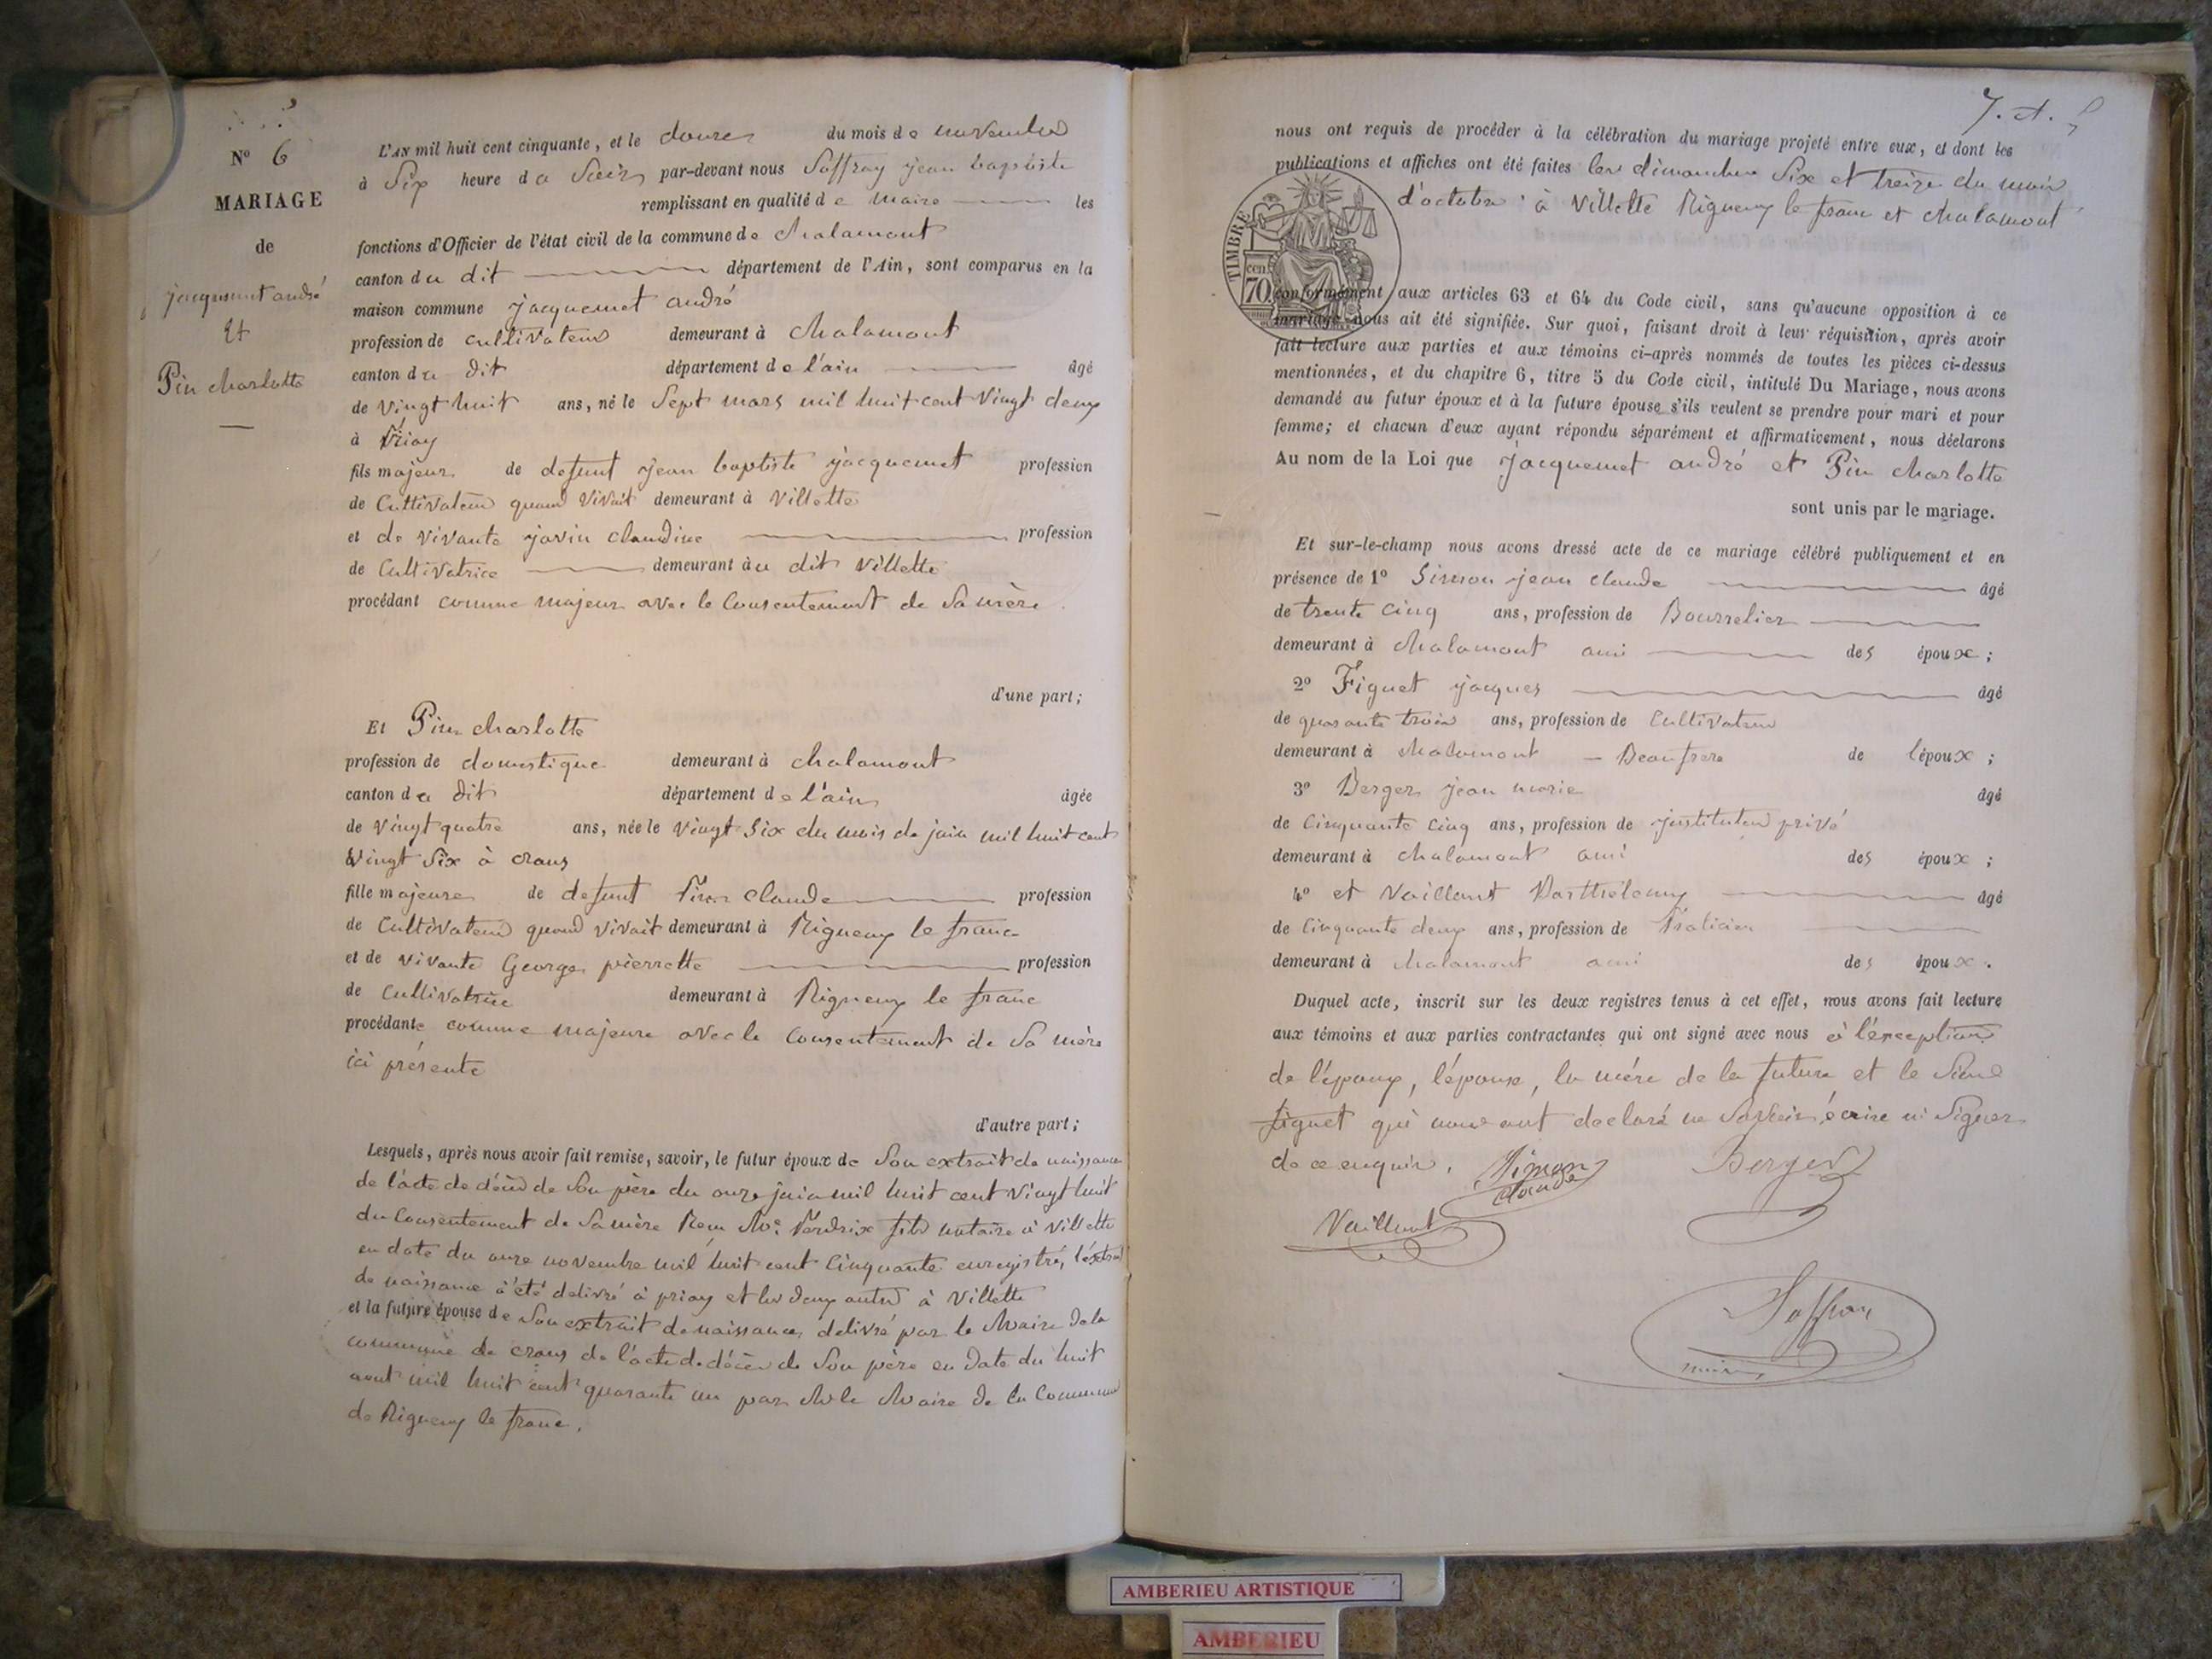 N° 6
MARIAGE
de
jacquemet andré
Et
Pin charlotte
L'AN mil huit cent cinquante, et le douze du mois de novembre
à Six heure du Soir par-devant nous Soffray jean baptiste
remplissant en qualité de maire les
fonctions d'Officier de l'état civil de la commune de chalamont
canton du dit département de l'Ain, sont comparus en la
maison commune jacquemet andré
profession de cultivateur demeurant à chalamont
canton du dit département de l'ain âgé
de vingt huit ans, né le Sept mars mil huit cent vingt deux
à Priay
fils majeur de defunt jean baptiste jacquemet profession
de Cultivateur quand vivait demeurant à Villette
et de vivante javin claudine profession
de Cultivatrice demeurant au dit Villette
procédant comme majeur avec le Consentement de Sa mère.
d'une part;
Et Pin charlotte
profession de domestique demeurant à chalamont
canton du dit département de l'ain âgée
de vingt quatre ans, née le vingt Six du mois de juin mil huit cent
vingt Six à crans
fille majeure de defunt Pin claude profession
de Cultivateur quand vivait demeurant à Rigneux le franc
et de vivante George pierrette profession
de Cultivatrice demeurant à Rigneux le franc
procédante comme majeure avec le Consentement de Sa mère
ici présente
d'autre part;
Lesquels, après nous avoir fait remise, savoir, le futur époux de Son extrait de naissance
de l'acte de décès de Son père du onze juin mil huit cent vingt huit
du Consentement de Sa mère Reçu Me. fils notaire à Villette
en date du onze novembre mil huit cent Cinquante enregistré, l'extrait
de naissance à été delivré à priay et les deux autres à Villette
et la future épouse de Son extrait de naissance, delivré par le Maire de la
commune de crans de l'acte de décès de Son père en date du huit
aout mil huit cent quarante un par Mr le Maire de la Commune
de Rigneux le franc.
nous ont requis de procéder à la célébration du mariage projeté entre eux, et dont les
publications et affiches ont été faites les dimanches Six et treize du mois
d'octobre à Villette Rigneux le franc et chalamont
TIMBRE
70 cen.
conformément aux articles 63 et 64 du Code civil, sans qu'aucune opposition à ce
mariage nous ait été signifiée. Sur quoi, faisant droit à leur réquisition, après avoir
fait lecture aux parties et aux témoins ci-après nommés de toutes les pièces ci-dessus
mentionnées, et du chapitre 6, titre 5 du Code civil, intitulé Du Mariage, nous avons
demandé au futur époux et à la future épouse s'ils veulent se prendre pour mari et pour
femme; et chacun d'eux ayant répondu séparément et affirmativement, nous déclarons
Au nom de la Loi que Jacquemet andré et Pin charlotte
sont unis par le mariage.
Et sur-le-champ nous avons dressé acte de ce mariage célébré publiquement et en
présence de 1° Simon jean claude âgé
de trente cinq ans, profession de Bourrelier
demeurant à chalamont ami des époux;
2° Figuet jacques âgé
de quarante trois ans, profession de Cultivateur
demeurant à chalamont - Beaufrere de l'époux;
3° Berger jean marie âgé
de Cinquante cinq ans, profession de jnstituteur privé
demeurant à chalamont ami des époux;
4° et Vaillant Barthélemy âgé
de Cinquante deux ans, profession de Praticien
demeurant à chalamont ami des époux.
Duquel acte, inscrit sur les deux registres tenus à cet effet, nous avons fait lecture
aux témoins et aux parties contractantes qui ont signé avec nous à l'éxception
de l'époux, l'épouse, la mère de la future et le Sieur
figuet qui nous ont declaré ne Savoir écrire ni Signer
de ce enquis.
Simon claude
Berger
Vaillant
Soffray
maire
AMBERIEU ARTISTIQUE
AMBERIEU